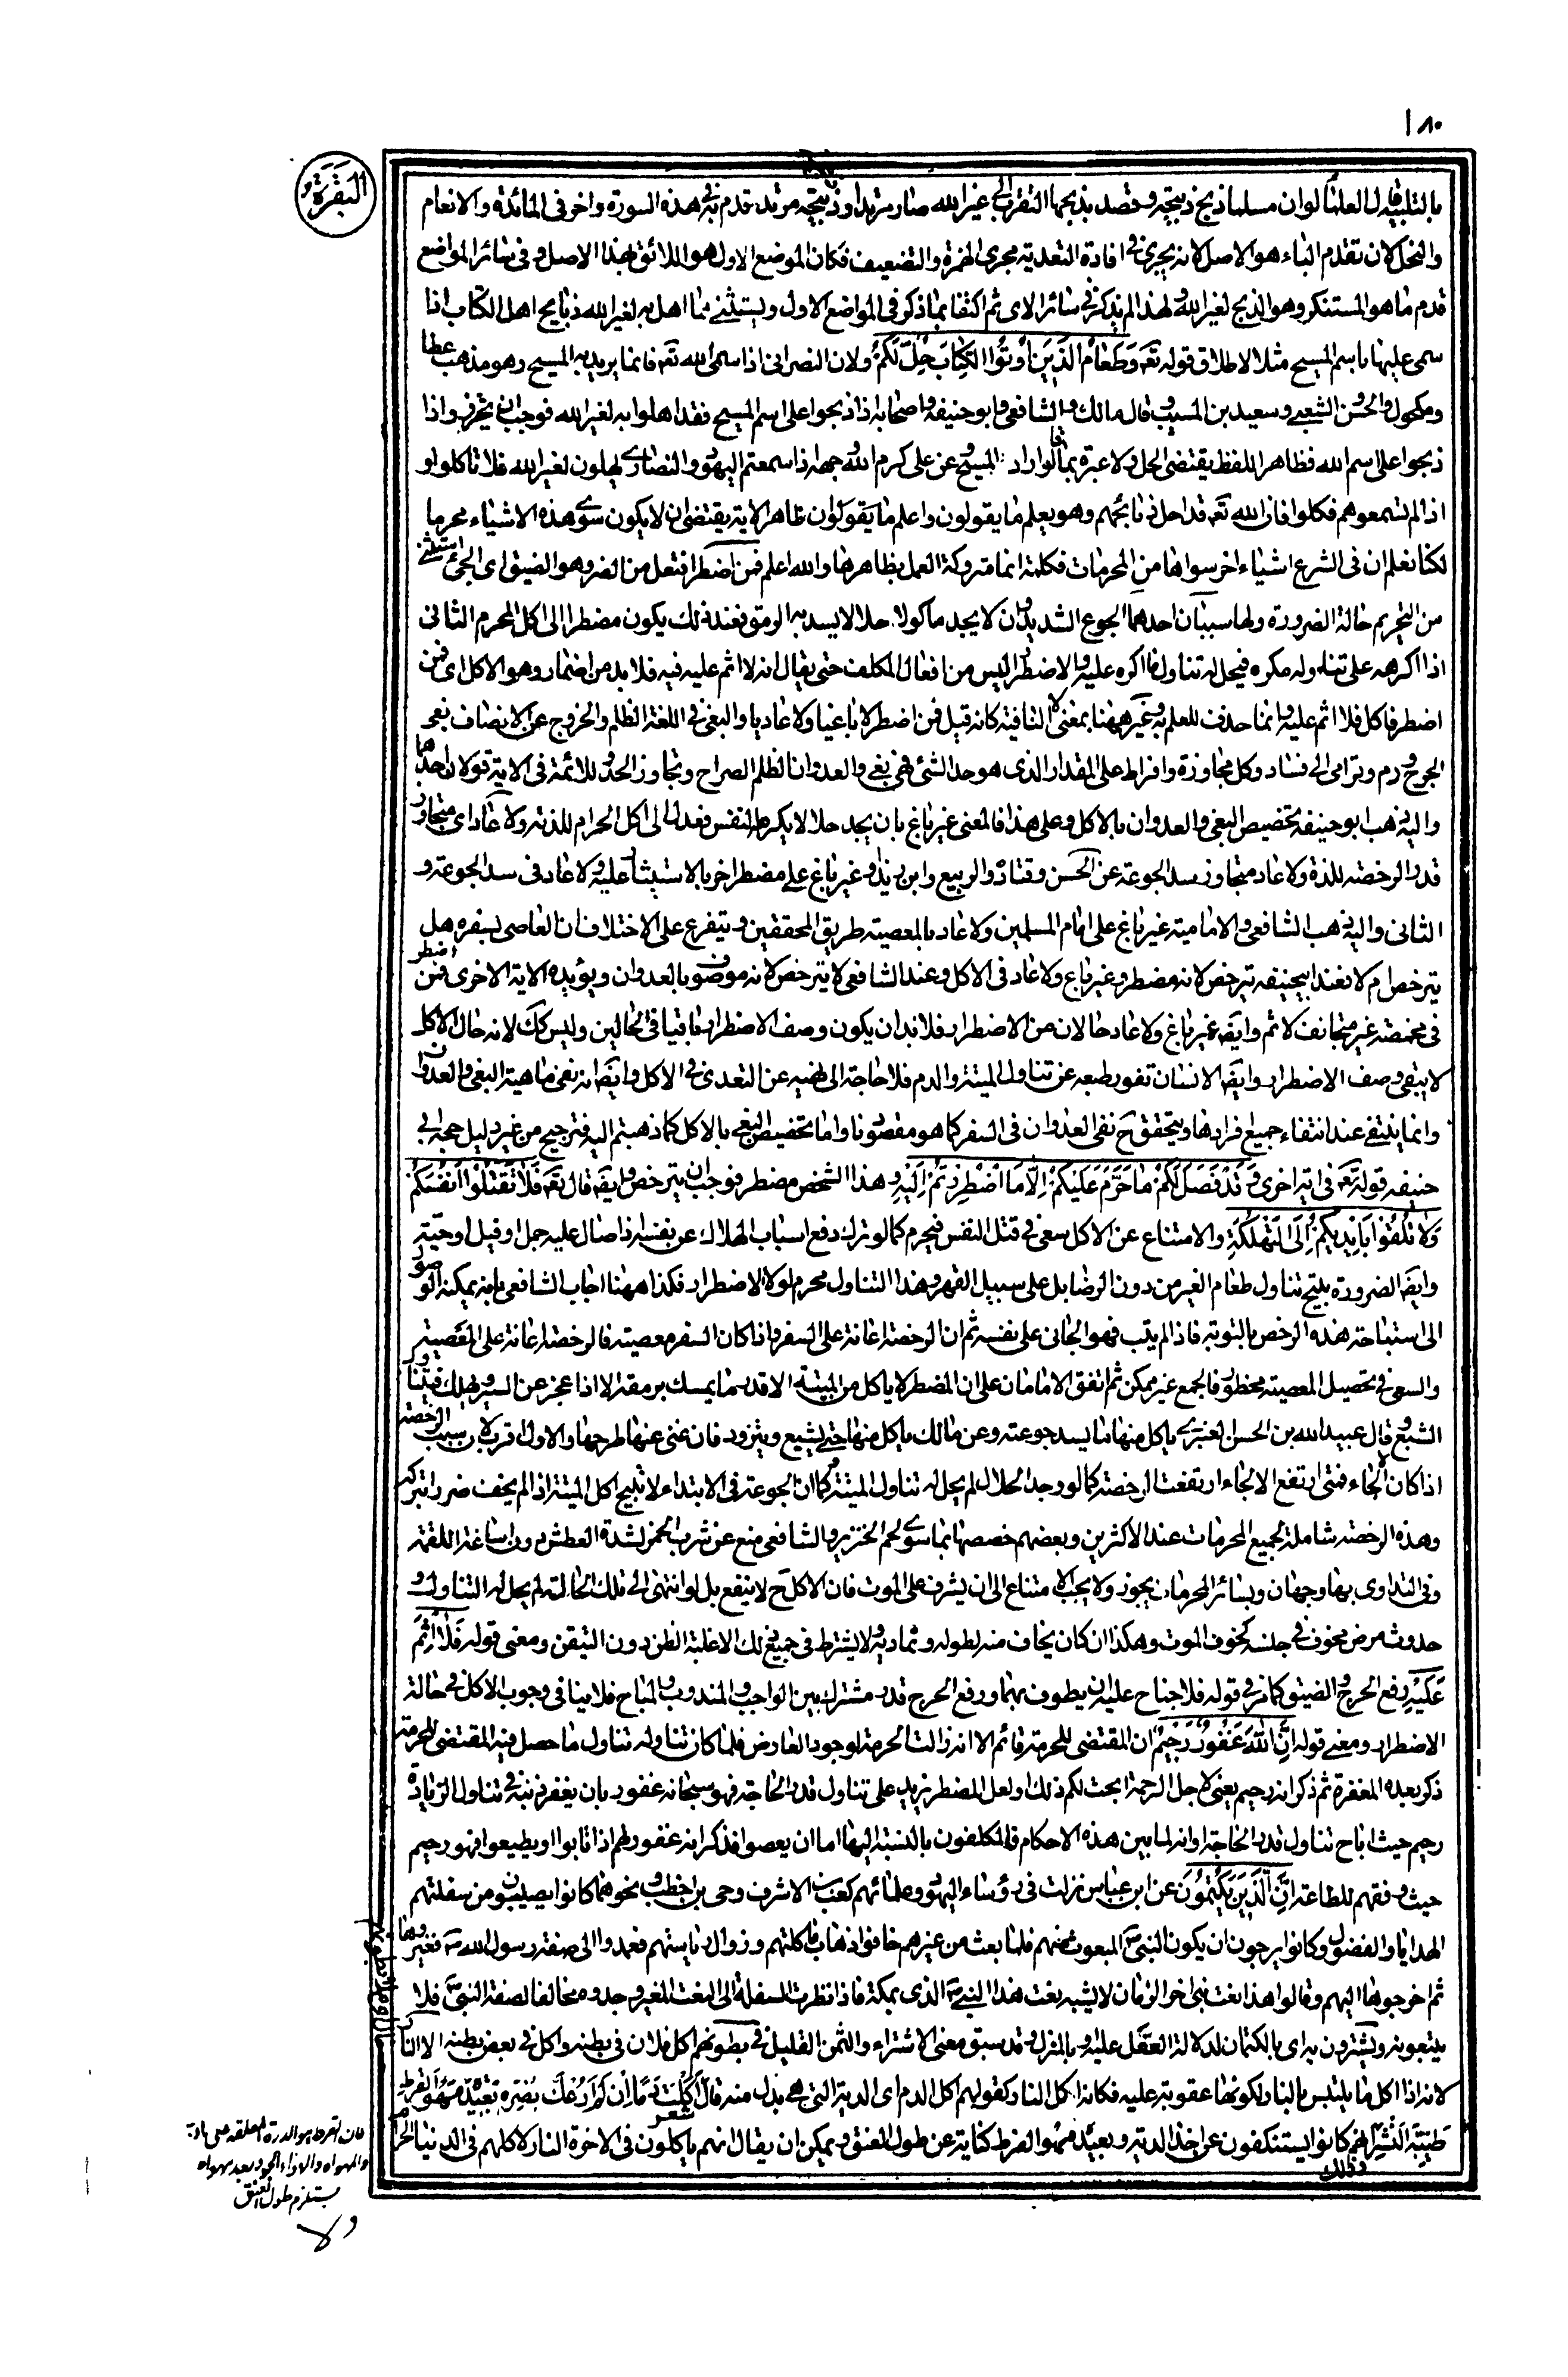 ١٨٠
البقرة
بالتلبية قال العلماء لو ان مسلما ذبح ذبيحة وقصد بذبحها التقرب الى غير الله صار مرتدا وذبيحته ذبيحة مرتد قدم به في هذه السورة واخر في المائدة والانعام
والنحل لان تقدم الباء هو الاصل لانه يجرى في افادة التعدية مجرى الهمزة والتضعيف فكان الموضع الاول هو اللائق بهذا الاصل وفى سائر المواضع
قدم ما هو المستنكر وهو الذبح لغير الله ولهذا لم يذكر في سائر الاى ثم اكتفا بما ذكر فى المواضع الاول ويستثنى مما اهل به لغير الله ذبايح اهل الكتاب اذا
سمى عليها باسم المسيح مثلا لاطلاق قوله تعه وَطَعَامُ الَّذِينَ اُوتُوا الْكِتَابَ حِلٌّ لَكُمْ ولان النصرانى اذا سمى الله تعه فانما يريد به المسيح وهو مذهب عطا
ومكحول والحسن والشعبي وسعيد بن المسيب وقال مالك والشافعى وابو حنيفة واصحابه اذا ذبحوا على اسم المسيح فقد اهلوا به لغير الله فوجب ان يحرم واذا
ذبحوا على اسم الله فظاهر اللفظ يقتضى الحل ولا عبرة بما لو اراد به المسيح وعن على كرم الله وجهه اذا سمعتم اليهود والنصارى يهلون لغير الله فلا تاكلوا و
اذا لم تسمعوهم فكلوا فان الله تعه قد احل ذبائحهم وهو يعلم ما يقولون واعلم ما يقولون ظاهر الاية يقتضى ان لا يكون سوى هذه الاشياء محرما
لكنا نعلم ان فى الشرع اشياء اخر سواها من المحرمات فكلمة انما متروكة العمل بظاهرها والله اعلم فمن اضطر افتعل من الضر وهو الضيق اى الجئ استثنى
من التحريم حالة الضرورة ولها سببان احدهما الجوع الشديد وان لا يجد ماكولا حلالا يسد به الرمق فعند ذلك يكون مضطرا الى اكل المحرم الثانى
اذا اكرهه على تناوله مكره فيحل له تناول ما اكره عليه والاضطرار ليس من افعال المكلف حتى يقال انه لا اثم عليه فيه فلا بد من اضمار وهو الاكل اى فمن
اضطر فاكل فلا اثم عليه وانما حذف للعلم به وغير ههنا بمعنى لا النافية كانه قيل فمن اضطر لا باغيا ولا عاديا والبغى فى اللغة الظلم والخروج عن الانصاف بغى
الجرح ورم وترامى الى فساد وكل مجاوزة وافراط على المقدار الذى هو حد الشئ فهى بغى والعدوان الظلم الصراح وتجاوز الحد وللائمة فى الاية قولان احدهما
واليه ذهب ابو حنيفة تخصيص البغى والعدوان بالاكل وعلى هذا فالمعنى غير باغ بان يجد حلالا يكرهه النفس فعدل الى اكل الحرام للذته ولا عاد اى متجاوز
قدر الرخصة للذة ولا عاد متجاوز سد الجوعة عن الحسن وقتادة والربيع وابن زيد او غير باغ على مضطر اخر بالاستيثار عليه ولا عاد فى سد الجوعة و
الثانى واليه ذهب الشافعى والامامية غير باغ على امام المسلمين ولا عاد بالمعصية طريق المحققين ويتفرع على الاختلاف ان العاصى بسفره هل
يترخص ام لا فعند ابيحنيفه يترخص لانه مضطر وغير باغ ولا عاد فى الاكل وعند الشافعى لا يترخص لانه موصوف بالعدوان ويؤيده الاية الاخرى فمن اضطر
فى مخمصة غير متجانف لاثم وايضه غير باغ ولا عاد حالان من الاضطرار فلا بد ان يكون وصف الاضطرار باقيا فى الحالين وليس كك لانه حال الاكل
لا يبقى وصف الاضطرار وايضه الانسان نفور طبعه عن تناول الميتة والدم فلا حاجة الى نهيه عن التعدى فى الاكل وايضه انه نفى ماهية البغى والعدوان
وانما ينتفى عند انتفاء جميع افرادها ويتحقق ح نفى العدوان فى السفر كما هو مقصودنا واما تخصيص البغى بالاكل كما ذهبتم اليه فترجيح من غير دليل حجة ابى
حنيفة قوله تعه فى اية اخرى وَقَدْ فَصَّلَ لَكُمْ مَا حَرَّمَ عَلَيْكُمْ اِلَّا مَا اضْطُرِرْتُمْ اِلَيْهِ وهذا الشخص مضطر فوجب ان يترخص وايضه قال تعه فَلَا تَقْتُلُوا اَنْفُسَكُمْ
وَلَا تُلْقُوا بِاَيْدِيكُمْ اِلَى التَّهْلُكَةِ والامتناع عن الاكل سعى فى قتل النفس فيحرم كما لو ترك دفع اسباب الهلاك عن نفسه اذا صال عليه جمل او فيل او حية
وايضه الضرورة يبيح تناول طعام الغير من دون الرضا بل على سبيل القهر وهذا التناول محرم لولا الاضطرار فكذا ههنا اجاب الشافعى بانه يمكنه الوصول
الى استباحة هذه الرخص بالتوبة فاذا لم يتب فهو الجانى على نفسه ثم ان الرخصة اعانة على السفر واذا كان السفر معصية فالرخصة اعانة على المعصية
والسعى فى تحصيل المعصية محظور فالجمع غير ممكن ثم اتفق الامامان على ان المضطر لا ياكل من الميتة الا قدر ما يمسك به رمقه الا اذا عجز عن السير ويهلك فيتناول
الشبع وقال عبيد الله بن الحسن العنبرى ياكل منها ما يسد جوعته وعن مالك ياكل منها حتى يشبع ويتزود فان غنى عنها طرحها والاول اقرب لان سبب الرخصة
اذا كان الالجاء فمتى ارتفع الالجاء ارتفعت الرخصة كما لو وجد الحلال لم يحل له تناول الميتة وكما ان الجوعة فى الابتداء لا تبيح اكل الميتة اذا لم يخف ضررا بتركه
وهذه الرخصة شاملة لجميع المحرمات عند الاكثرين وبعضهم خصصها بما سوى لحم الخنزير والشافعى منع عن شرب الخمر لشدة العطش دون اساغة اللقمة
وفى التداوى بها وجهان وبسائر المحرمات يجوز ولا يجب الامتناع الى ان يشرف على الموت فان الاكل ح لا ينفع بل لو انتهى الى تلك الحالة لم يحل له التناول و
حدوث مرض مخوف فى جلسه كخوف الموت وهكذا ان كان يخاف منه لطوله وتماديه ولا يشترط فى جميع ذلك الا غلبة الظن دون التيقن ومعنى قوله فَلَا اِثْمَ
عَلَيْهِ رفع الحرج والضيق كما مر فى قوله فلا جناح عليه ان يطوف بهما ورفع الحرج قدر مشترك بين الواجب والمندوب والمباح فلا ينافى وجوب الاكل فى حالة
الاضطرار ومعنى قوله اِنَّ اللّٰهَ غَفُورٌ رَحِيمٌ ان المقتضى للحرمة قائم الا انه زالت الحرمة لوجود العارض فلما كان تناوله تناول ما حصل فيه المقتضى للحرمة
ذكر بعده المغفرة ثم ذكر انه رحيم يعنى لاجل الرحمة ابحت لكم ذلك او لعل المضطر يزيد على تناول قدر الحاجة فهو سبحانه غفور بان يغفر ذنبه فى تناول الزيادة
رحيم حيث اباح تناول قدر الحاجة او انه لما بين هذه الاحكام فالمكلفون بالنسبة اليها اما ان يعصوا فذكر انه غفور لهم اذا تابوا او يطيعوا فهو رحيم
حيث وفقهم للطاعة اِنَّ الَّذِينَ يَكْتُمُونَ عن ابن عباس نزلت فى رؤساء اليهود وعلمائهم كعب بن الاشرف وحى بن اخطب ونحوهما كانوا يصيبون من سفلتهم
الهدايا والفضول وكانوا يرجون ان يكون النبى المبعوث منهم فلما بعث من غيرهم خافوا ذهاب ماكلتهم وزوال رياستهم فعمدوا الى صفة رسول الله ص فغيروها
ثم اخرجوها اليهم وقالوا هذا نعت نبى اخر الزمان لا يشبه نعت هذا النبى ص الذى بمكة فاذا نظرت السفلة الى النعت المغير وجدوه مخالفا لصفة النبى ص فلا
يتبعونه ويشترون به اى بالكتمان لدلالة الفعل عليه او بالمنزل وقد سبق معنى الاشتراء والثمن القليل فى بطونهم اكل فلان فى بطنه واكل فى بعض بطنه الا النار
لانه اذا اكل ما يلتبس بالنار لكونها عقوبة عليه فكانه اكل النار كقولهم اكل الدم اى الدية التى هى بدل منه قال شعر اَكَلْتُ دَمًا اِنْ لَمْ اَرُعْكِ بِضَرَّةٍ بَعِيدَةِ مَهْوَى الْقُرْطِ
طَيِّبَةِ النَّشْرِ وذلك انهم كانوا يستنكفون عن اخذ الدية وبعيد مهوى القرط كناية عن طول العنق ويمكن ان يقال انهم ياكلون فى الاخرة النار لاكلهم فى الدنيا الحرام
فان القرط هو الدرة المعلقة
مستلزم طول العنق
ولا